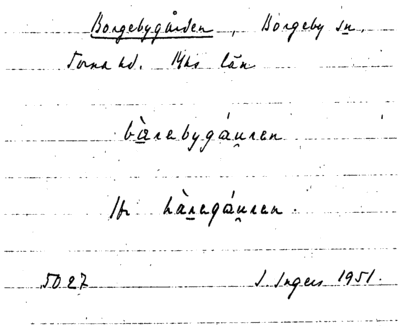 Borgebygården, Borgeby sn,
Torna hd. Mhs län
bàrebygáu̯ren
hàregáu̯ren.
5027 I. Ingers 1951.